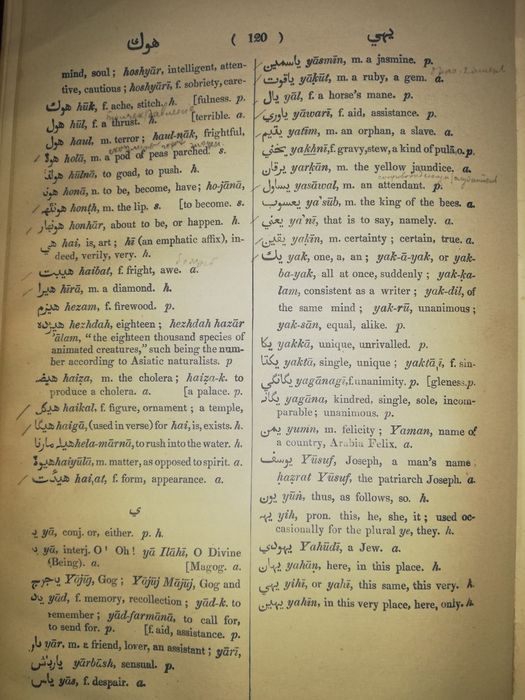 هوك ( 120 ) يهي
mind, soul; hoshyār, intelligent, atten-
tive, cautious; hoshyārī, f. sobriety, care-
هوك hūk, f. ache, stitch. h. [fulness. p.
هول hūl, f. a thrust. h. [terrible. a.
هول haul, m. terror; haul-nāk, frightful,
هولا holā, m. a pod of peas parched. s.
هولنا hūlnā, to goad, to push. h.
هونا honā, n. to be, become, have; ho-jānā,
هونٿهه honṭh, m. the lip. s. [to become. s.
هونهار honhār, about to be, or happen. h.
هي hai, is, art; hī (an emphatic affix), in-
deed, verily, very. h.
هيبت haibat, f. fright, awe. a.
هيرا hīrā, m. a diamond. h.
هيزم hezam, f. firewood. p.
هيزده hezhdah, eighteen; hezhdah hazār
'ālam, "the eighteen thousand species of
animated creatures," such being the num-
ber according to Asiatic naturalists. p
هيضه haiẓa, m. the cholera; haiẓa-k. to
produce a cholera. a. [a palace. p.
هيكل haikal, f. figure, ornament; a temple,
هيگا haigā, (used in verse) for hai, is, exists. h.
هيله مارنا hela-mārnā, to rush into the water. h.
هيولا haiyūlā, m. matter, as opposed to spirit. a.
هيئت hai,at, f. form, appearance. a.
ي
يا yā, conj. or, either. p. h.
يا yā, interj. O! Oh! yā Ilāhī, O Divine
(Being). a. [Magog. a.
ياجوج Yājūj, Gog; Yājūj Mājūj, Gog and
ياد yād, f. memory, recollection; yād-k. to
remember; yād-farmānā, to call for,
to send for. p. [f. aid, assistance. p.
يار yār, m. a friend, lover, an assistant; yārī,
yārbāsh, sensual. p.
ياس yās, f. despair. a.
ياسمين yāsmīn, m. a jasmine. p.
ياقوت yāḳūt, m. a ruby, a gem. a.
يال yāl, f. a horse's mane. p.
ياوري yāwarī, f. aid, assistance. p.
يتيم yatīm, m. an orphan, a slave. a.
يخني yaḵẖnī, f. gravy, stew, a kind of pulā,o. p.
يرقان yarḳān, m. the yellow jaundice. a.
يساول yasāwal, m. an attendant. p.
يعسوب ya'sūb, m. the king of the bees. a.
يعني ya'nī, that is to say, namely. a.
يقين yaḳīn, m. certainty; certain, true. a.
يك yak, one, a, an; yak-ā-yak, or yak-
ba-yak, all at once, suddenly; yak-ḳa-
lam, consistent as a writer; yak-dil, of
the same mind; yak-rū, unanimous;
yak-sān, equal, alike. p.
يكا yakkā, unique, unrivalled. p.
يكتا yaktā, single, unique; yaktā,ī, f. sin-
يگانگي yagānagī, f. unanimity. p. [gleness. p.
يگانه yagāna, kindred, single, sole, incom-
parable; unanimous. p.
يمن yumn, m. felicity; Yaman, name of
a country, Arabia Felix. a.
يوسف Yūsuf, Joseph, a man's name.
haẓrat Yūsuf, the patriarch Joseph. a.
يون yūṅ, thus, as follows, so. h.
يهه yih, pron. this, he, she, it; used oc-
casionally for the plural ye, they. h.
يهودي Yahūdī, a Jew. a.
يهان yahāṅ, here, in this place. h.
يهي yihī, or yahī, this same, this very. h.
يهين yahīṅ, in this very place, here, only. h.